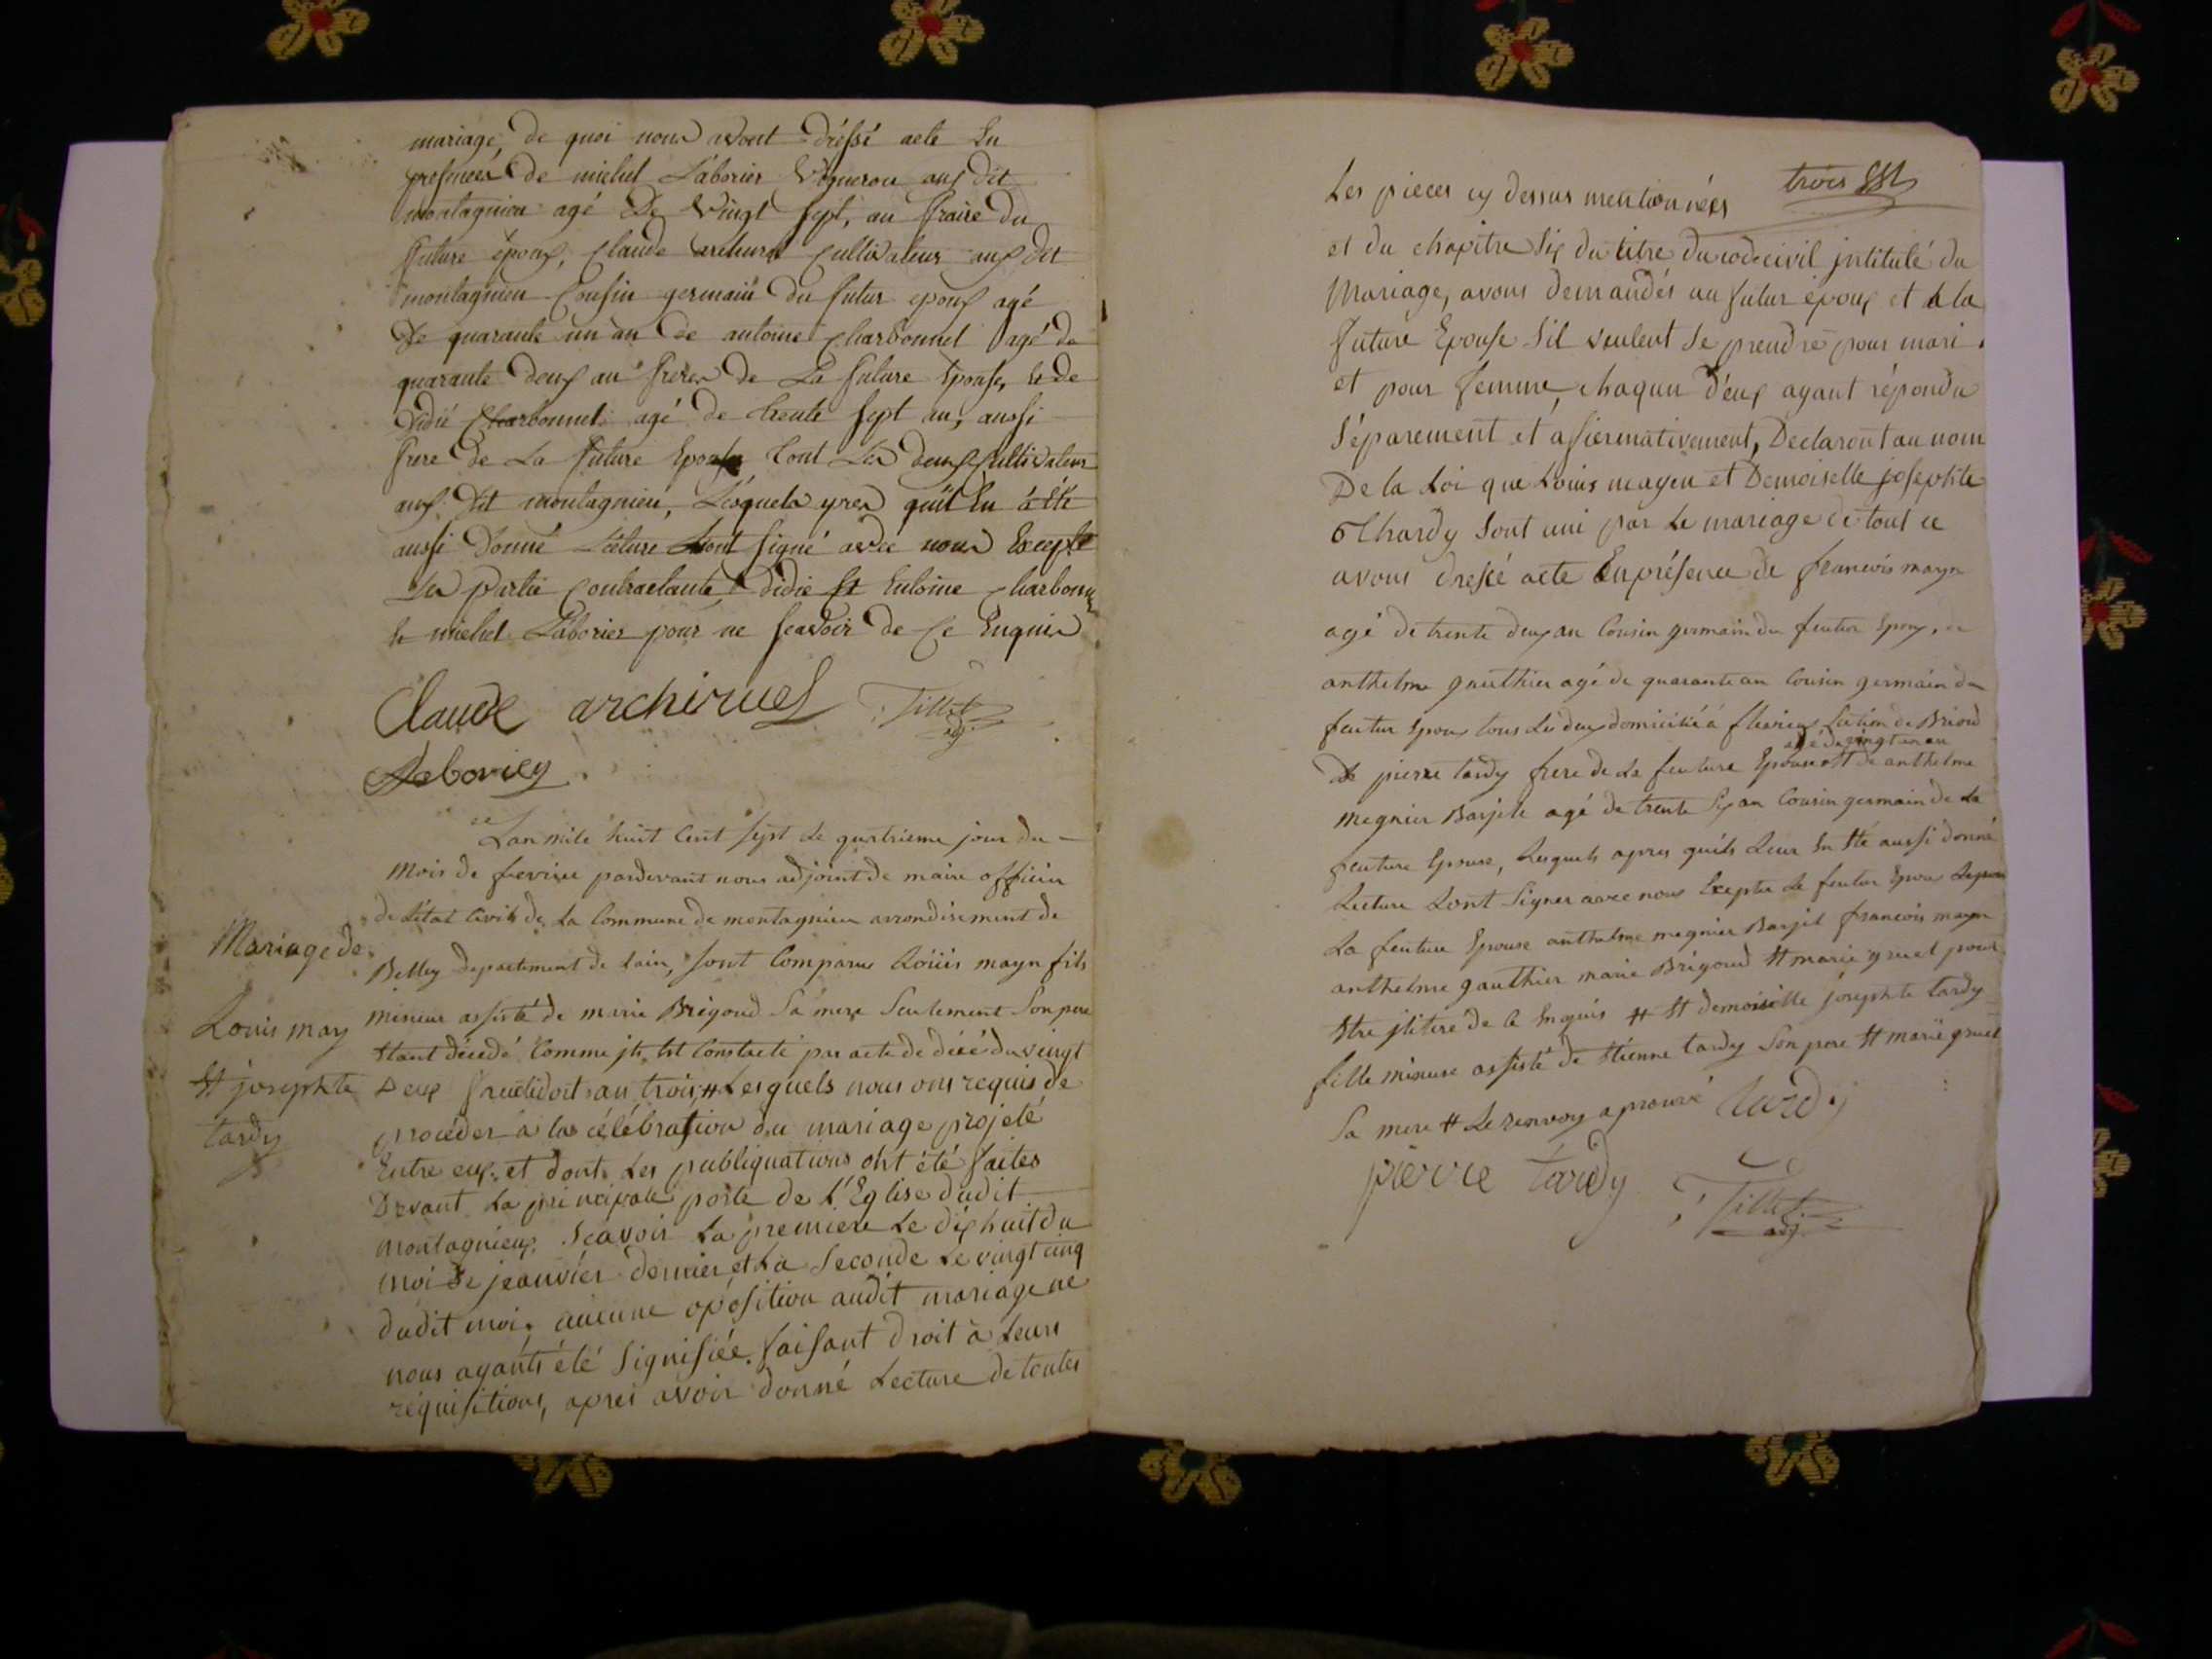 mariage, de quoi nous avont dréssé acte En
presences de michel Laborier Vigneron aus dit
montagnieu agé De Vingt sept, au fraire du
future époux, Claude archiruel Cultivateur aux dit
montagnieu Cousin germain du futur epoux agé
de quarante un an de antoine Charbonnel agé de
quarante deux an freres de La future Epouse, Et de
didié Charbonnel agé de trente sept an, aussi
frere de La future Epouse tout Les deux Cultivateur
aux dit montagnieu, Lesquels apres quil En a été
aussi donné Lecture Lont signé avec nous Excepte
Les partie Contractante didie Et Entoine Charbonnel
Et michel Laborier pour ne scavoir de Ce Enquis
Claude archiruel Tillet
adj.
Laborier
Lan mile huit Cent sept Le quatrieme jour du
Mois de fevrier pardevant nous adjoint de maire officier
de L'état Civil de La Commune de montagnieu arrondisement de
Mariage de
Belley departement de Lain, sont Comparus Loüis mayn fils
Louis may
mineur assisté de marie Brigoud Sa mere Seulement Son pere
Etant décedé Comme jl Est Constaté par acte de décé du vingt
Et josephte
Deux fructidort an trois, # Lesquels nous ons requis de
tardy
procéder à la célébration du mariage projeté
Entre eux et dont Les publiquations ont été faites
Devant La principale porte de L'Eglise dudit
montagnieux, Scavoir La premiere Le dix huit du
moi de jeanvier dernier et La Seconde Le vingt cinq
dudit moi, aucune opósition audit mariage ne
nous ayants été Signifiée, faisant droit à Leurs
réquisitions, aprés avoir donné Lecture de toutes
trois
Les pieces cy dessus mentionnées
et du chapitre Six du titre du code civil jntitulé du
Mariage, avons demandés au futur époux et à la
future Epouse Sil veulent Se prendre pour mari
et pour femme, chaqun d'eux ayant répondu
Séparement et affiermativement, Declaront au nom
De la Loi que Louis mayen et Demoiselle josephte
Thardy Sont uni par Le mariage de tout ce
avons dressé acte En présence de francois mayn
agé de trente deux an Cousin germain du feutur Epoux, de
anthelme gauthier agé de quarante an Cousin germain du
feutur Epoux tous Les deux domicilié à Section de Briord
agé de vingt un an
De pierre tardy frere de La feuture Epouse Et de anthelme
megnier Barjit agé de trente Six an Cousin germain de La
feuture Epouse, Lesquels apres quils Leur En Eté aussi donné
Lecture Lont Signer avec nous Exepter Le feutur Epoux
La feuture Epouse anthelme megnier Barjit francois mayn
anthelme gauthier marie Brigoud Et marie gruel pour
Etre jlitere de Ce Enquis # Et demoiselle josephte tardy
fille mineure assisté de Etienne tardy Son pere Et marie gruel
Sa mere # Le renvoy aprouvé tardy
pierre tardy Tillet
adj.